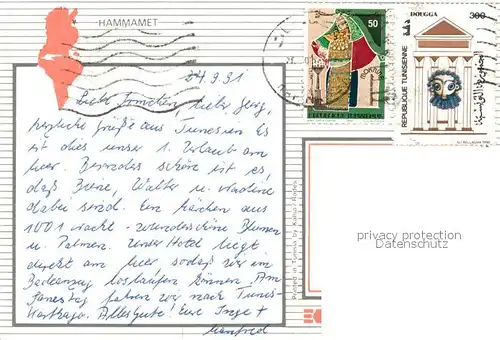 HAMMAMET
50
DOUGGA
300
REPUBLIQUE TUNISIENNE
24.9.91
Liebe Irmchen, lieber Georg,
herzliche Grüße aus Tunesien Es
ist dies unser 1. Urlaub am
Meer. Besonders schön ist es,
daß Irene, Walter u. Nadine
dabei sind. Ein Märchen aus
1001 Nacht - wunderschöne Blumen
u. Palmen. Unser Hotel liegt
direkt am Meer, sodaß wir im
Badeanzug loslaufen können. Am
Samstag fahren wir nach Tunis-
Karthago. Alles Gute! Eure Inge +
Manfred
Printed in Tunisia by Kahia Rades
privacy protection
Datenschutz